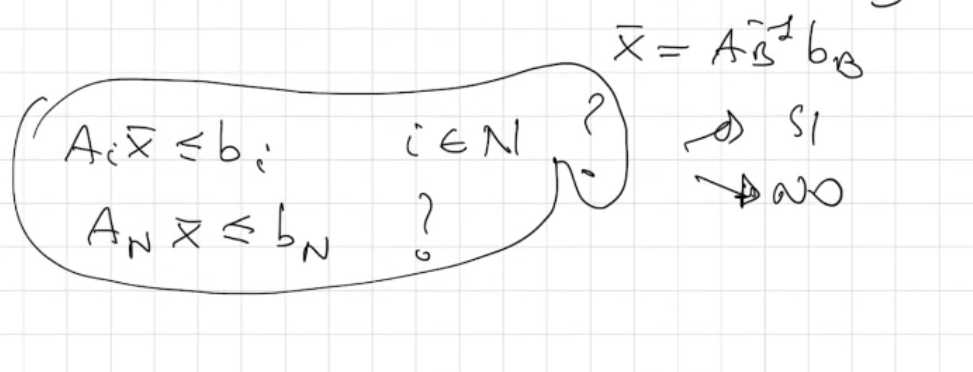 x̄ = A_B^{-1} b_B
A_i x̄ ≤ b_i i ∈ N ?
A_N x̄ ≤ b_N ?
→ SI
→ NO